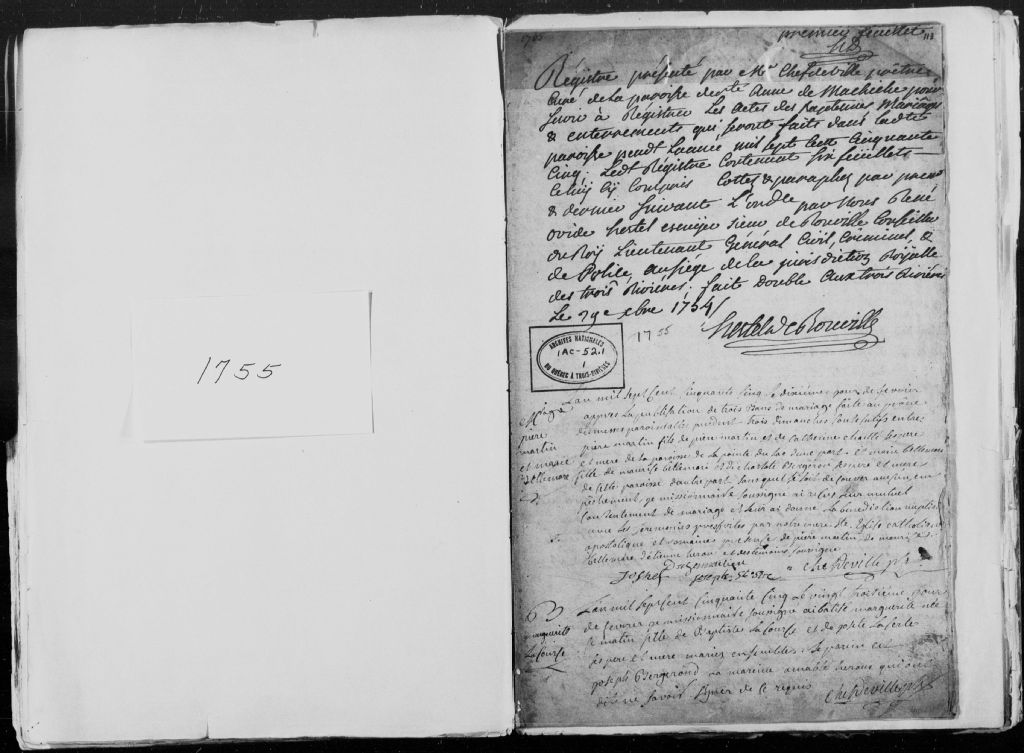 1755
1755
premier feuillet
113
Régistre présenté par Mr Chefdeville prêtre
Curé de la paroisse de Ste Anne de Machiche pour
servir à Régistrer Les Actes des Baptêmes Mariages
& enterrements qui seront faits dans ladte
paroisse pendt Lannée mil sept cent Cinquante
Cinq. Ledt Régistre Contenant six feuillets
Celuy cy Compris Cottez & paraphez par premr
& dernier suivant L'ordce par Nous René
ovide hertel escuyer sieur de Rouville Conseiller
du Roy Lieutenant Général Civil, Criminel, &
de Police, au siége de la jurisdiction Royalle
des trois Rivières. fait Double aux trois Rivières
Le 29e xbre 1754
Hertel de Rouville
1755
ARCHIVES NATIONALES
1AC-52.1
1
DU QUÉBEC À TROIS-RIVIÈRES
Mariage
piere
martin
et marie
Bellemare
Lan mil sept Cent Cinquante Cinq le dixieme jour de fevrier
appres La publication de trois Bans de mariage faite au prône
des messes paroissiales pendent trois dimanches Consecutifs entre
piere martin fils de piere martin et de Catherine
et mere de la paroisse de la pointe du lac dune part et marie bellemare
fille de maurise bellemare et de charlote Bergeron ses pere et mere
de cette paroisse dautre part sans quil se soit decouver aucun em
pechement, je missionnaire soussigne ai recus leur mutuel
Consentement de mariage et leur ai donné la benediction nuptiale
avec les seremonies prescrites par notre mere Ste Eglise catholique
apostolique et romaine en presence de piere martin, de maurise
bellemare detienne heroux et des temoins soussigne
joseph
Chefdeville ptre
B
marguerite
La Course
Lan mil sept sent Cinquante Cinq Le vingt troisieme jour
de fevrier je missionnaire soussigne ai batisé marguerite née
le matin fille de Baptiste La Course et de
ses pere et mere mariés ensembles. Le parein est
joseph Bergerond La mareine amable heroux qui ont
dits ne savoir signer de Ce requis
Chefdeville ptre